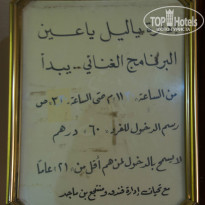 TOP HOTELS
ياليل ياعين
البرنامج الغنائي .. يبدأ
من الساعة ١١,٣٠ م حتى الساعة ٣,٠ ص
رسم الدخول للفرد ٦٠ درهم
لايسمح بالدخول لمن هم أقل من (٢١) عاماً
مع تحيات إدارة فندق ومنتجع بن ماجد